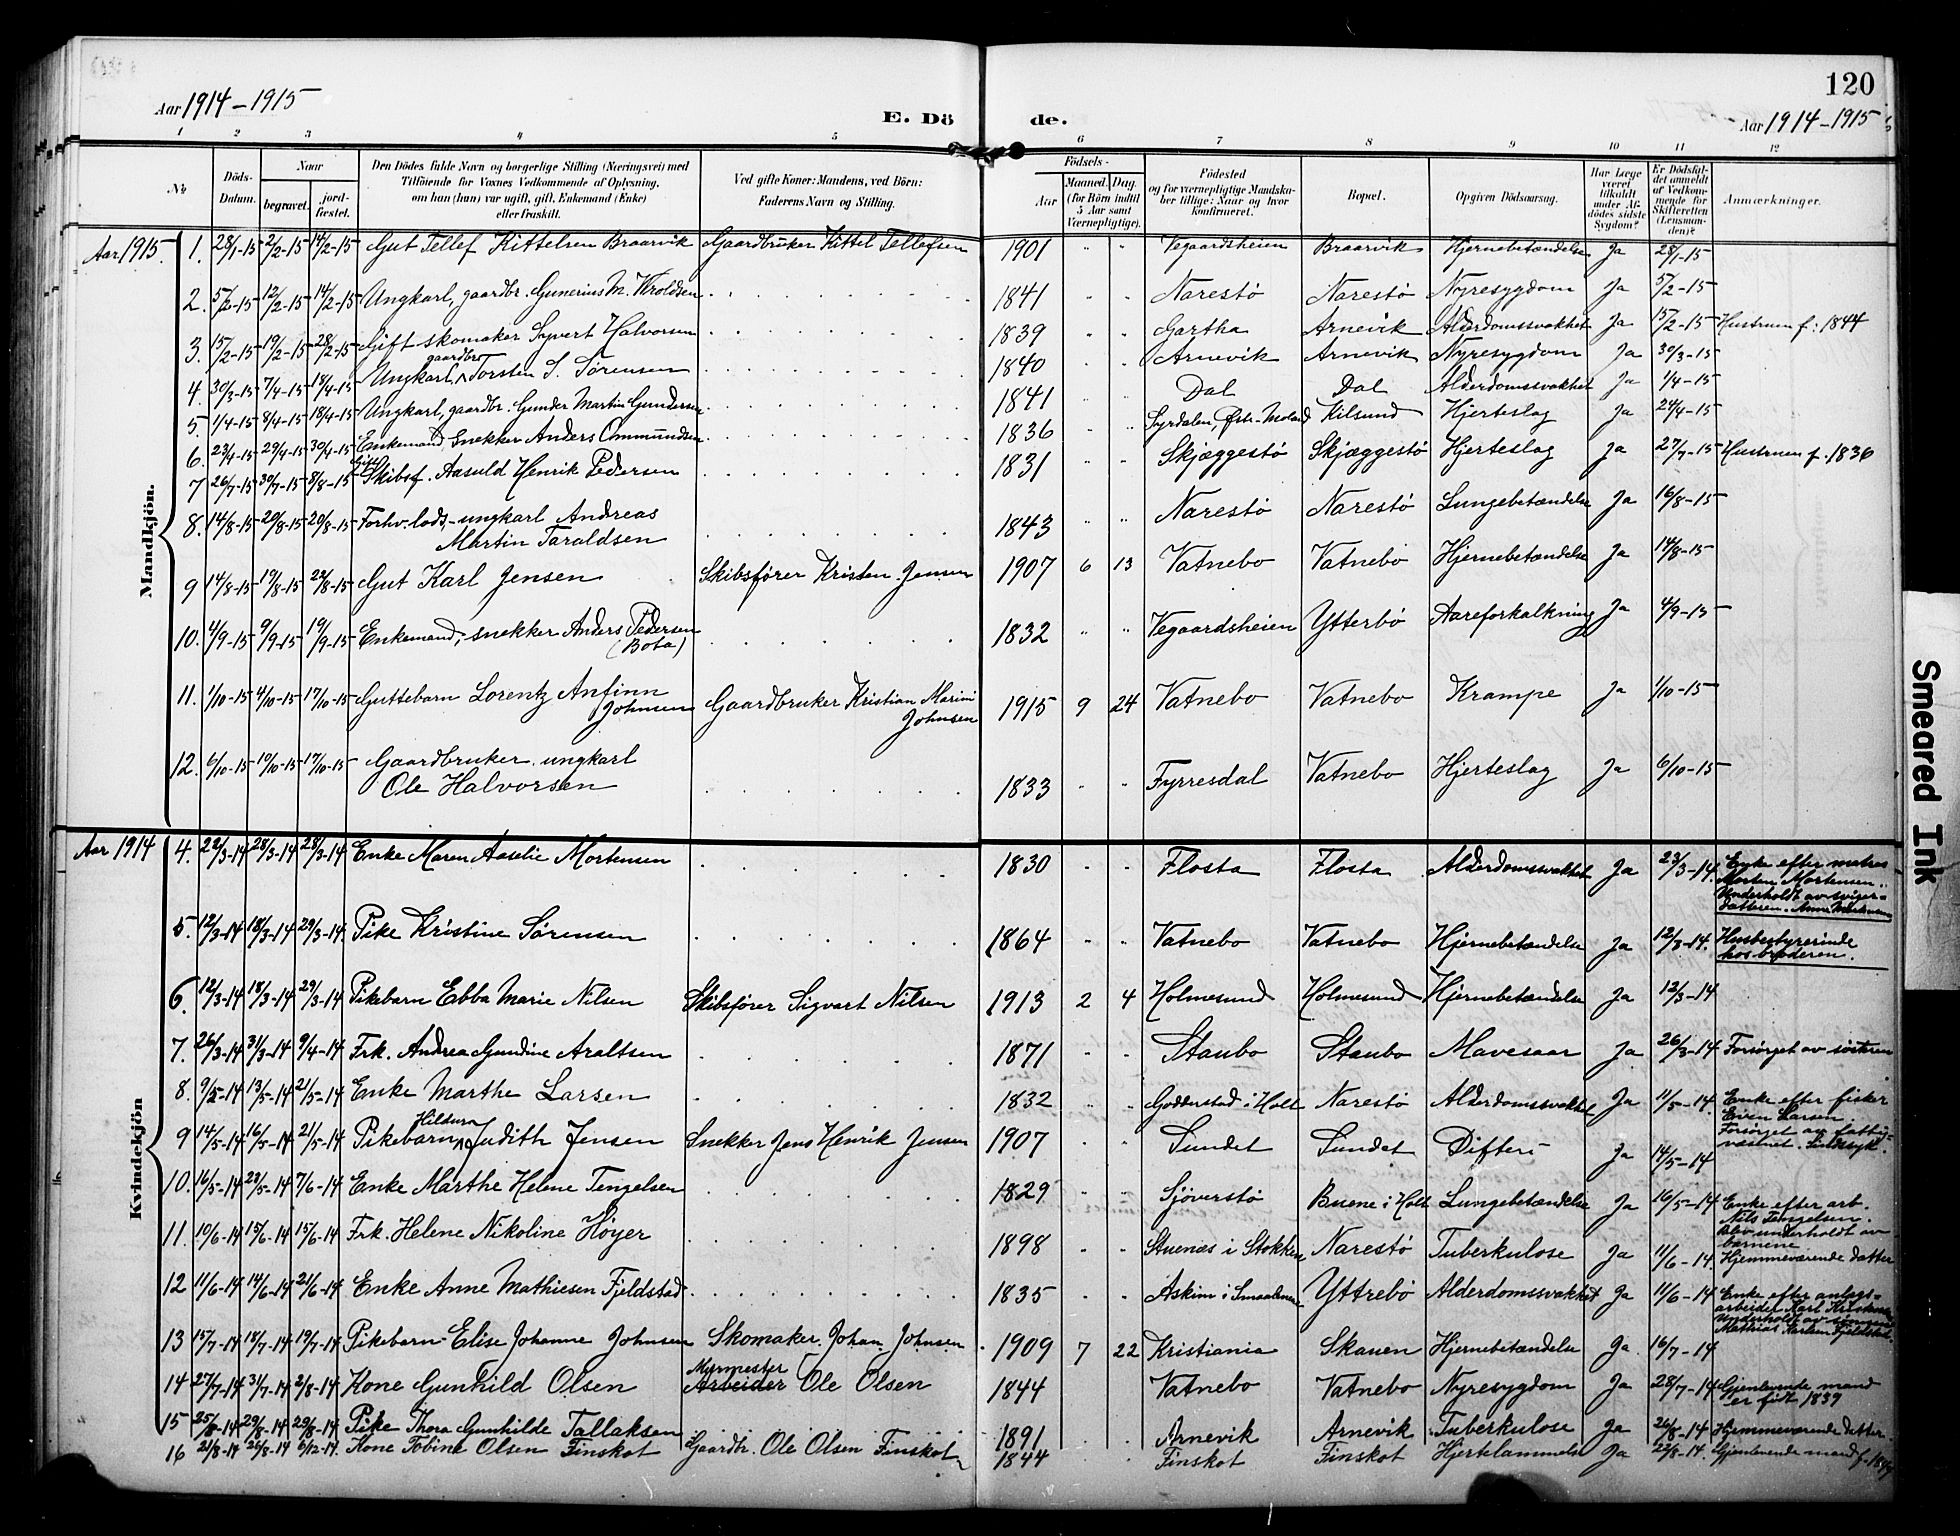 120
Aar 1914-1915
E. Dö de.
Aar 1914-1915
1 2 3 4 5 6 7 8 9 10 11 12
No
Döds-Datum.
Naar
begravet.
jord-fæstet.
Den Dödes fulde Navn og borgerlige Stilling (Næringsvei) med Tilföiende for Voxnes Vedkommende af Oplysning, om han (hun) var ugift, gift, Enkemand (Enke) eller fraskilt.
Ved gifte Koner: Mandens, ved Börn: Faderens Navn og Stilling.
Födsels-
Aar
Maaned. Dag.
(for Börn indtil 5 Aar samt Værnepligtige).
Födested og for værnepligtige Mandskaber tillige: Naar og hvor konfirmeret.
Bopæl.
Opgiven Dödsaarsag.
Har Læge været tilkaldt under Afdödes sidste Sygdom?
Er Dödsfaldet anmeldt af Vedkommende for Skifteretten (Lensmanden)?
Anmærkninger.
Aar 1915.
Mandkjön.
1. 28/1-15 2/2-15 14/2-15 Gut Tellef Kittelsen Braarvik Gaardbruker Kittel Tellefsen 1901 " " Vegaardsheien Braarvik Hjernebetændelse Ja 28/1-15
2. 5/2-15 12/2-15 14/2-15 Ungkarl, gaardbr. Gunerius M. Wroldsen 1841 " " Narestø Narestø Nyresygdom Ja 5/2-15
3. 15/2-15 19/2-15 28/2-15 Gift skomaker Syvert Halvorsen 1839 " " Gartha Arnevik Alderdomssvakhet Ja 15/2-15 Hustruen f: 1844
4. 30/3-15 7/4-15 18/4-15 Ungkarl, gaardbr. Torsten S. Tørensen 1840 " " Arnevik Arnevik Nyresygdom Ja 30/3-15
5. 1/4-15 8/4-15 18/4-15 Ungkarl, gaardbr. Gunder Martin Gundersen 1841 " " Dal Dal Alderdomssvakhet Ja 1/4-15
6. 23/4-15 29/4-15 30/4-15 Enkemand, Snekker Anders Ommundsen 1836 " " Syrdalen, Østr. Moland Kilsund Hjerteslag Ja 24/4-15
7 26/7-15 30/7-15 8/8-15 Gift Skibsf. Aasuld Henrik Pedersen 1831 " " Skjæggestø Skjæggestø Hjerteslag Ja 27/7-15 Hustruen f. 1836
8. 14/8-15 20/8-15 20/8-15 Forhv. lods, - ungkarl Andreas
Martin Taraldsen 1843 " " Narestø Narestø Lungebetændelse Ja 16/8-15
9 14/8-15 19/8-15 22/8-15 Gut Karl Jensen Skibsfører Kristen Jensen 1907 6 13 Vatnebo Vatnebo Hjernebetændelse Ja 14/8-15
10. 4/9-15 9/9-15 19/9-15 Enkemand, - snekker Anders Pedersen
(Bota) 1832 " " Vegaardsheien Ytterbö Aareforkalkning Ja 4/9-15
11. 1/10-15 4/10-15 17/10-15 Guttebarn Lorentz Anfinn
Johnsen Gaardbruker Kristian Marini
Johnsen 1915 9 24 Vatnebo Vatnebo Krampe Ja 1/10-15
12. 6/10-15 10/10-15 17/10-15 Gaardbruker, ungkarl
Ole Halvorsen 1833 " " Fyrresdal Vatnebo Hjerteslag Ja 6/10-15
Aar 1914
Kvindekjön
4. 22/3-14 28/3-14 28/3-14 Enke Maren Aaselie Mortensen 1830 " " Flosta Flosta Alderdomssvakhet Ja 23/3-14. Enke efter matros
Morten Mortensen.
Underholdt av sviger-
datteren. Anne
5. 12/3-14 18/3-14 29/3-14. Pike Kristine Sørensen 1864 " " Vatnebo Vatnebo Hjernebetændelse Ja 12/3-14. Husbestyrerinde
hos broderen.
6. 12/3-14 18/3-14 29/3-14 Pikebarn Ebba Marie Nilsen Skibsfører Sigvart Nilsen 1913 2 4 Holmesund Holmesund Hjernebetændelse Ja 12/3-14
7. 26/3-14 31/3-14 9/4-14 Frk. Andrea Gundine Araltsen 1871 " " Staubo Staubo Mavesaar Ja 26/3-14 Forsørget av søsteren
8. 9/5-14 13/5-14 21/5-14 Enke Marthe Larsen 1832 " " Godderstad i Holt Narestø Alderdomssvakhet Ja 11/5-14. Enke efter fisker
Even Larsen.
Forsørget av fattig-
væsenet. Sindssyk.
9 14/5-14 16/5-14 21/5-14 Pikebarn Hildur Judith Jensen Snekker Jens Henrik Jensen 1907 " " Sundet Sundet Difteri Ja 14/5-14
10. 16/5-14 23/5-14 7/6-14 Enke Marthe Helene Tengelsen 1829 " " Sjöverstö Buene i Holt Lungebetændelse Ja 16/5-14 Enke efter arb.
Nils Tengelsen.
Blev underholdt av
børnene
11. 10/6-14 15/6-14 15/6-14 Frk. Helene Nikoline Høyer 1898 " " Stuenæs i Stokken Narestø Tuberkulose Ja 11/6-14. Hjemmeværende datter
12 11/6-14 14/6-14 21/6-14 Enke Anne Mathiesen Fjeldstad 1835 " " Askim i Smaalenene Yttrebö Alderdomssvakhet Ja 11/6-14 Enke efter anlegs-
arbeider Karl
Underholdt av sønnen
Mathias Karlsen Fjeldstad
13 15/7-14 18/7-14 19/7-14 Pikebarn Elise Johanne Johnsen Skomaker Johan Johnsen 1909 7 22 Kristiania Skauen Hjernebetændelse Ja 16/7-14
14 27/7-14 31/7-14 2/8-14 Kone Gunhild Olsen Murmester Arbeider Ole Olsen 1844 Vatnebo Vatnebo Nyresygdom Ja 28/7-14 Gjenlevende mand
er født 1839
15 25/8-14 29/8-14 29/8-14 Pike Thora Gunhilde Tallaksen 1891 Arnevik Arnevik Tuberkulose Ja 26/8-14 Hjemmeværende datter.
16 21/8-14 25/8-14 6/12-14. Kone Tobine Olsen Finskot Gaardbr. Ole Olsen Finskot 1844 Finskot Finskot Hjertelammelse Ja 22/8-14. Gjenlevende mand
Smeared Ink